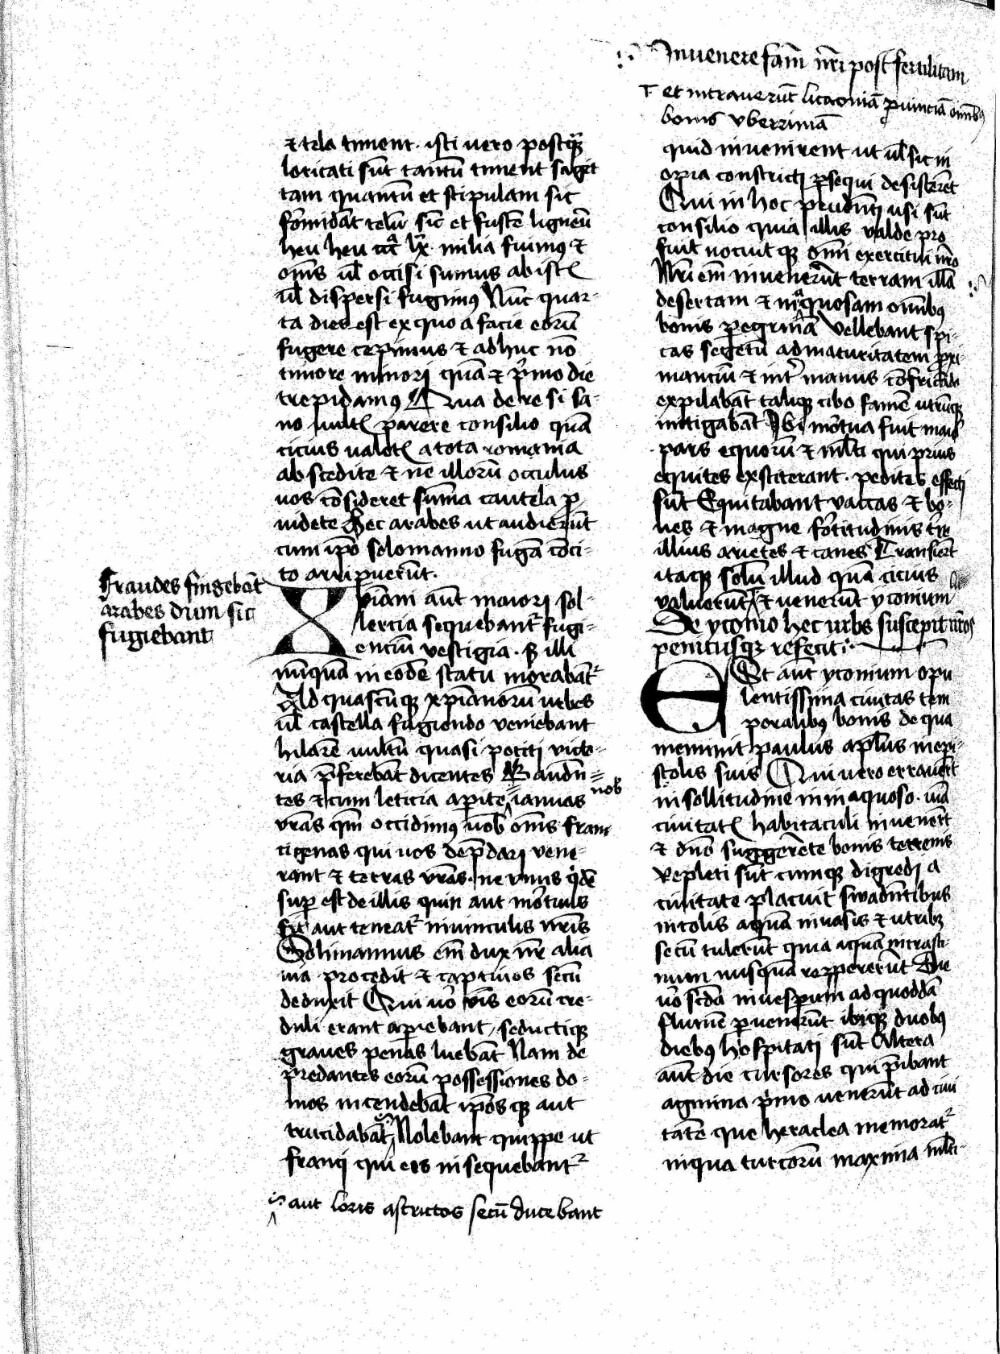 ⁊ tela timent · isti vero postq̄ꝫ
loricati sūt tantū timent sagit
tam quantū et stipulam sic
formidāt telū sic̄ et fustē ligneū
heu heu milia fuimus ⁊
om̄s ul̄ occisi sumus ab ist
ul̄ dispersi fugimus Nūc quar-
ta dies est ex quo a facie eorū
fugere cepimus ⁊ adhuc nō
timore minori quā ⁊ p̄mo die
trepidamus Qua de re si sa-
no vult parere consilio quā
cicius valet a tota romania
abscedite ⁊ ne illorū occulus
uos cōsideret sūma cautela p̄
uidete Hec arabes ut audierūt
cum ip̄o solomanno fugā cōci-
to arripuerūt ·
Fraudes fingebāt
arabes dum sic
fugiebant
Xpiani aūt maiori sol-
lercia sequebantᷣ fugi-
enciū vestigia · illi
nūquā in eodē statu morabātᷣ
Ad quascūqꝫ xpianorū urbes
ul̄ castella fugiendo veniebant
hilarē vultū quasi potiti victo-
ria p̄ferebāt dicentes Gaudē-
tes ⁊ cum leticia aperite nob ianuas
vr̄as qm̄ occidimus uob om̄s fran
cigenas qui uos dep̄dari vene-
rant ⁊ terras vr̄as · ne vnus qidē
sup est de illis quin aut mortuus
sit aut teneatᷣ in vinculis nr̄is
Solimannus em̄ dux nr̄ alia
via procedit ⁊ captiuos secū
deduxit Qui vo v̄is eorū cre-
duli erant aperiebant, seductiqꝫ
graues penas luebāt Nam de
predantes eorū possessiones do-
mos incendebāt ip̄os qꝫ aut
trucidabāt Nolebant quippe ut
franci qui eis insequebantᷣ
aut loris astrictos secū ducebant
Invenere fam̄ nr̄i post fertilitam
et intrauerūt licaoniā puinciā om̄ibus
bonis vberrimā
quid invenirent ut ul̄ sic in
opia constricti p̄sequi desisterēt
Qui in hoc prudēti usi sūt
consilio quia illis valde pro
fuit nocuit qꝫ om̄i exercitui nr̄o
Nr̄i em̄ invenerūt terram illā
desertam ⁊ inaquosam om̄ibus
bonis peregrinā Vellebant spi-
cas segetū ad maturitatem pro-
manciū ⁊ int manus cōfricādo
expilabāt taliqꝫ cibo famē utcūqꝫ
mitigabāt Ibi mortua fuit maior
pars equorū ⁊ ml̄ti qui prius
equites exstiterant · pedites effecti
sūt Equitabant vaccas ⁊ bo-
ues ⁊ magne fortitudinis tr̄e
illius arietes ⁊ canes Transierūt
itaqꝫ solū illud quā cicius
valuerūt ⁊ venerūt yconium
De yconio hec urbs suscepit nr̄os
penitusqꝫ refecit ·
Est aūt yconium opu
lentissima ciuitas tem
poralibus bonis de qua
meminit paulus apl̄us in epi-
stolis suis Qui vero erauerūt
in sollitudine in inaquoso · viā
ciuitat habitaculi inuenerūt
⁊ dn̄o suggerēte bonis terrenis
Repleti sūt cumqꝫ digredi a
ciuitate placuit swadentibus
incolis aquā in vasis ⁊ utribꝫ
secū tulerūt quia aquā in crasti-
num nusquā repererūt Die
vo scd̄a in vesperum ad quoddā
flumē peruenerūt ibiqꝫ duobus
diebus hospitati sūt Altera
aūt die cursores qui p̄ibant
agmina p̄mo venerūt ad ciui
tatē que heraclea memoratᷣ
in qua turcorū maxima ml̄ti-